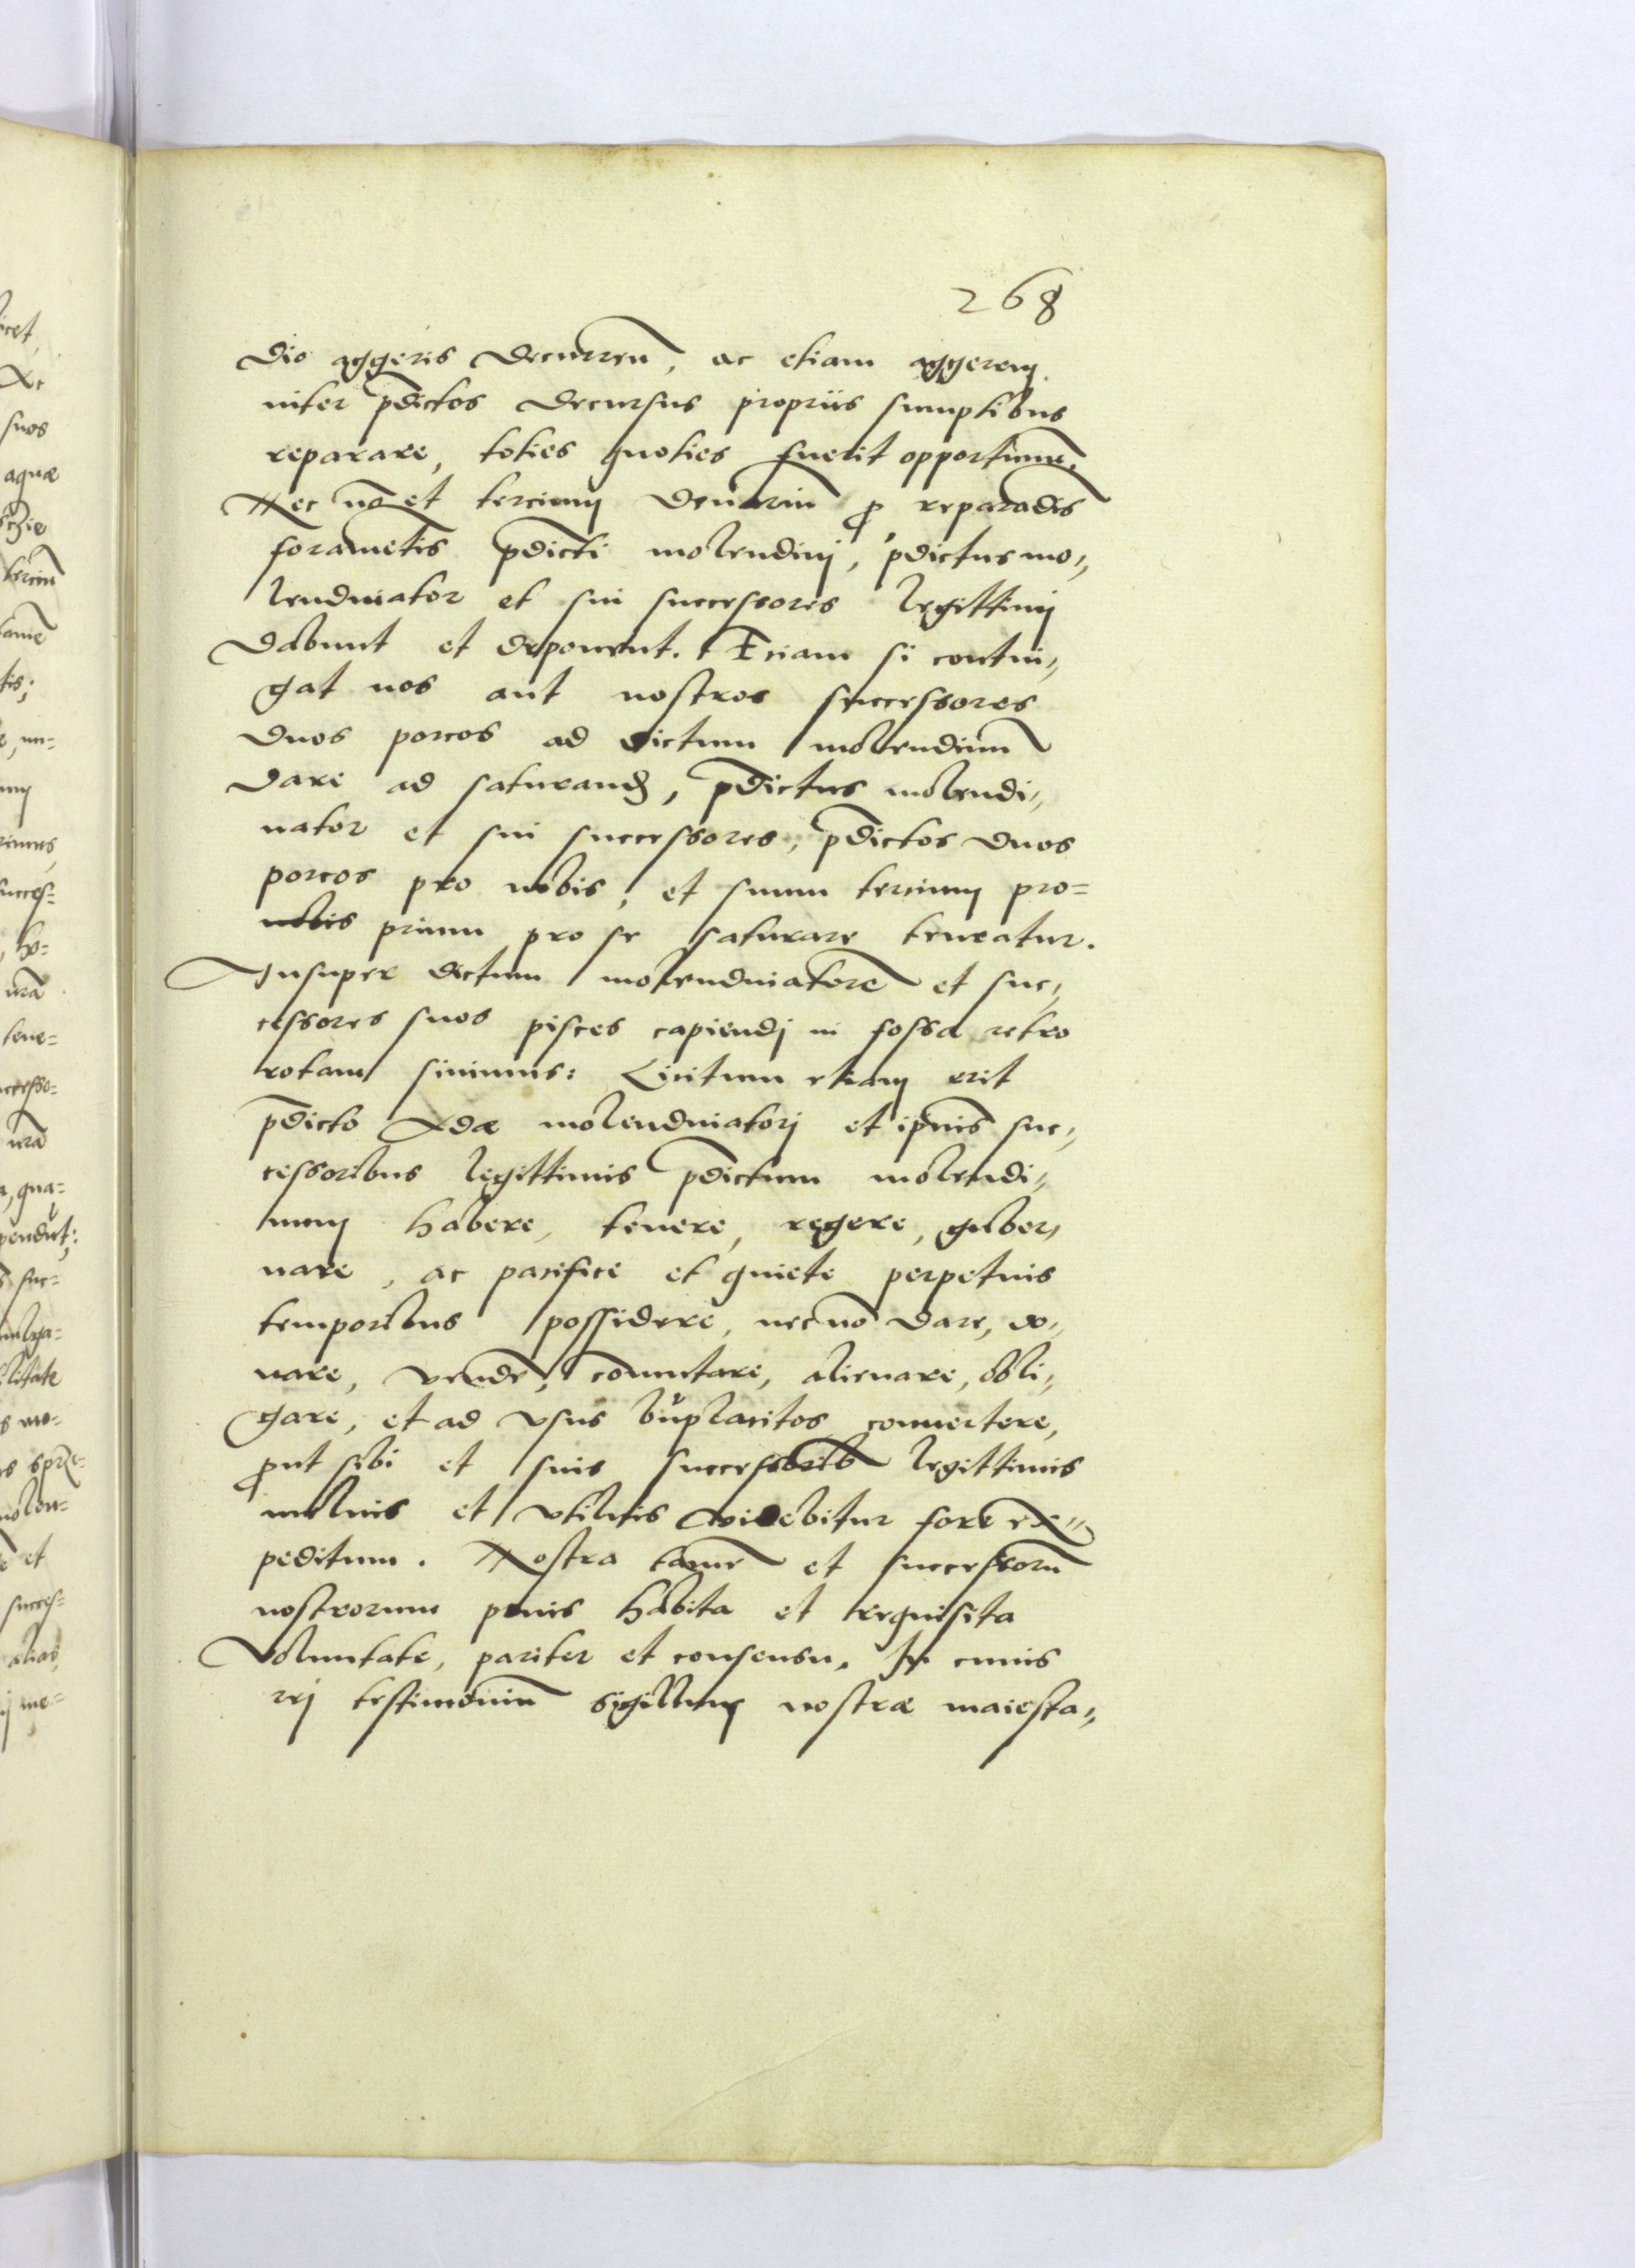 268
dio aggeris decurreñ, ac etiam aggerem
inter p̄dictos decursus propriis sumptibus
reparare, toties quoties fuerit opportunū.
Nec nō et tercium denariū ꝓ reparādis
foramētis p̄dicti molendinj, p̄dictus mo„
lendinator et sui successores legittimj
dabunt et exponent. Etiam si contin„
gat nos aut nostros successores
duos porcos ad dictum molendinū
dare ad saturand, p̄dictus molendi„
nator et sui successores, p̄dictos duos
porcos pro nobis, et suum tercium pro=
nobis prium pro se saturare teneatur.
Insuper dictum molendinatorē et suc„
cessores suos pisces capiendj in fossa retro
rotam sinimus: Licitum etiam erit
p̄dicto Adæ molendinatorj et ipius suc„
cessoribus legittimis p̄dictum molendi„
num habere, tenere, regere, guber„
nare, ac pacifice et quiete perpetuis
temporibus possidere, nec nō dare, do„
nare, vendē, cōmutare, alienare, obli„
gare, et ad vsus būplacitos conuertere,
ꝓut sibi et suis successorib legittimis
melius et vtilius videbitur fore ex„
peditum. Nostra tamē et successorū
nostrorum prius habita et requisita
Voluntate, pariter et consensu. In cuius
rej testimoniū sigillum nostræ maiesta„
icet,
Ac
suos
aquæ
terciū
tamē
tis;
succes=
tene=
nrā
a, qua=
pendūt:
suc=
ilitate
s mo=
molen=
et
succes=
alias,
j me=